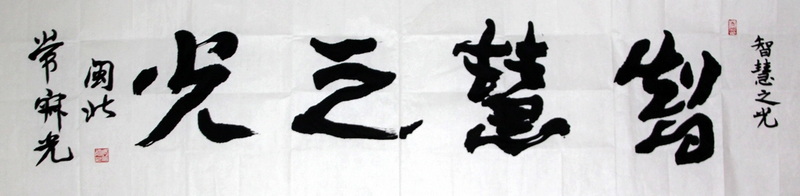 智慧之光
智慧之光
闽北
常寂光